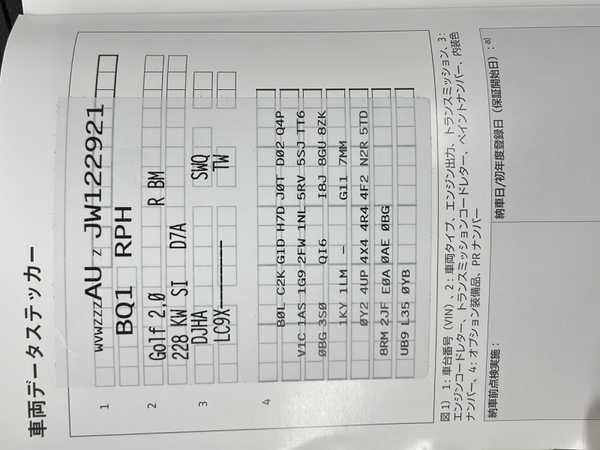 車両データステッカー
1 WVWZZZAU Z JW122921
BQ1 RPH
2 Golf 2,0 R BM
228 KW SI D7A
3 DJHA SWQ
LC9X TW
4
B0L C2K G1D H7D J0T D02 Q4P
V1C 1AS 1G9 2FW 1NL 5RV 5SJ TT6
0BG 3S0 QI6 I8J 8GU 8ZK
1KY 1LM — G11 7MM
0Y2 4UP 4X4 4R4 4F2 N2R 5TD
8RM 2JF E0A 0AE 0BG
UB9 L35 0YB
図1) 1:車台番号(VIN)、2:車両タイプ、エンジン出力、トランスミッション、3:
エンジンコードレター、トランスミッションコードレター、ペイントナンバー、内装色
ナンバー、4:オプション装備品、PRナンバー
納車前点検実施:
納車日/初年度登録日(保証開始日):a)